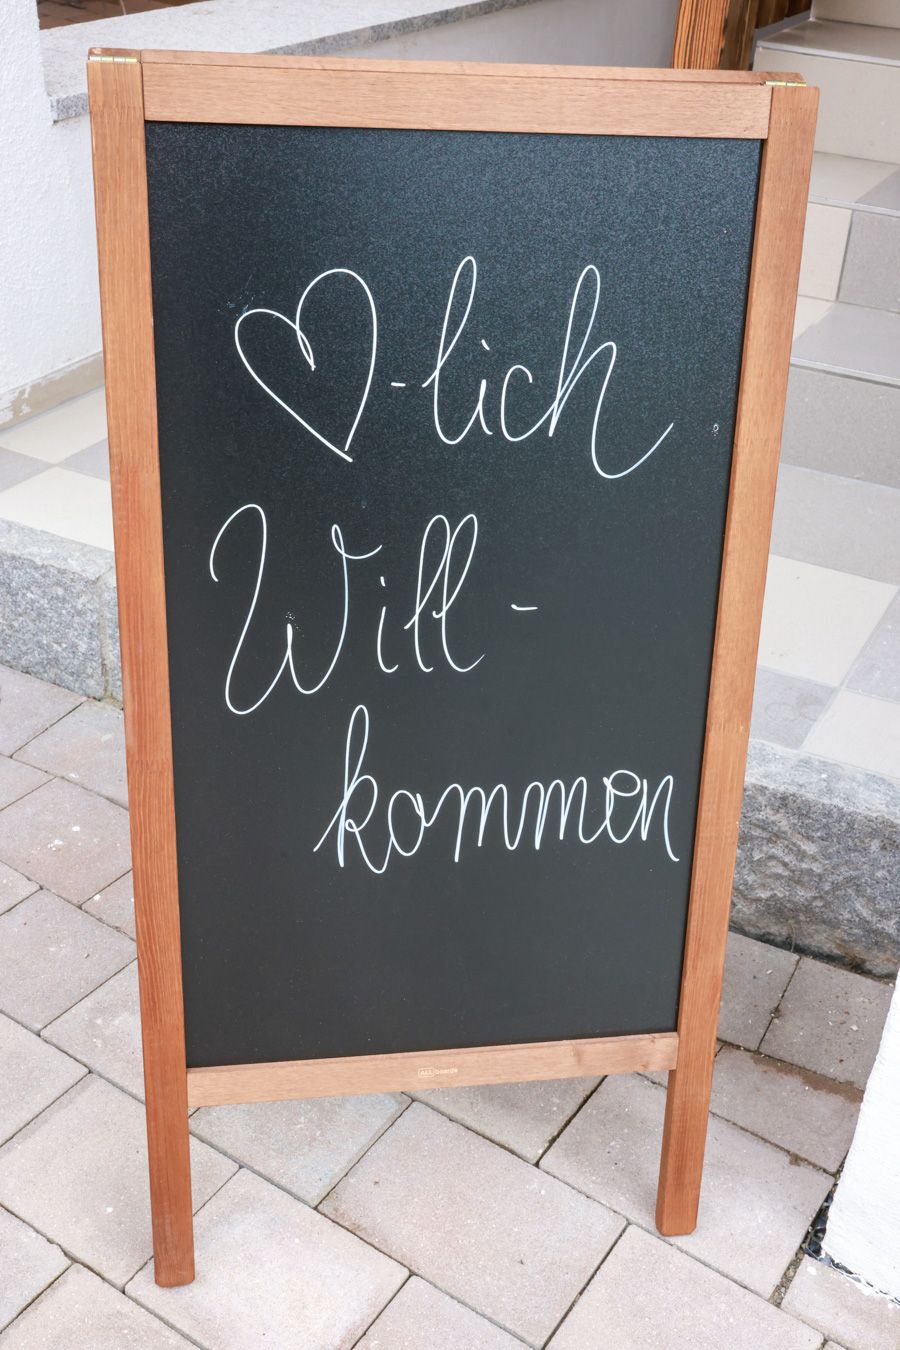 ♡-lich
Will-
kommen
ALL boards